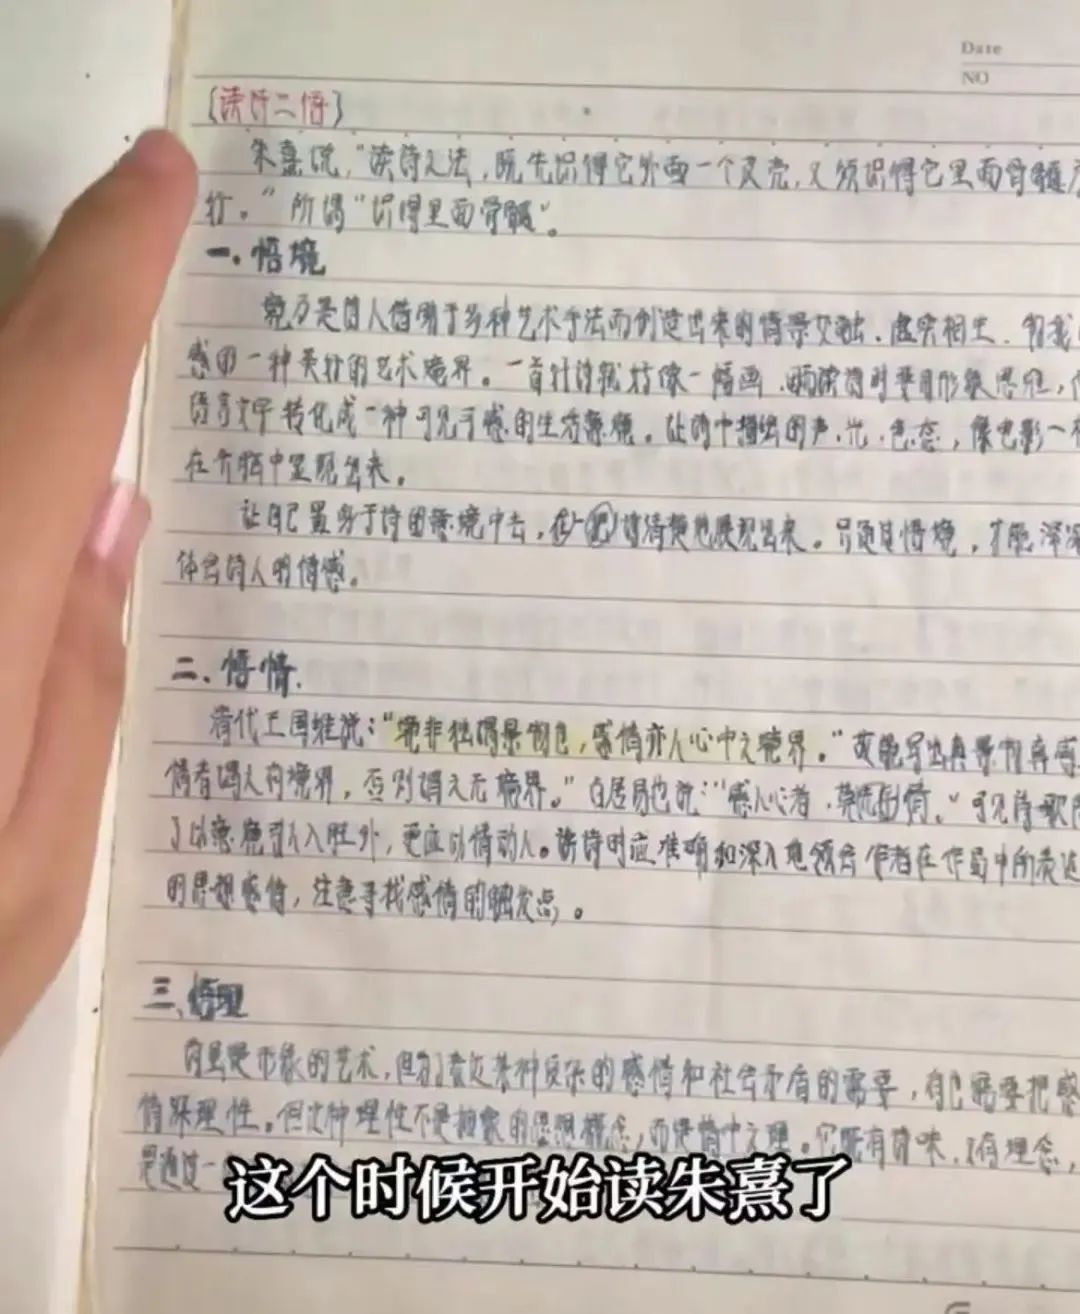 Date
NO
〔读诗二悟〕
朱熹说,"读诗之法,既先识得它外面一个皮壳,又须识得它里面骨髓方
好。"所谓"识得里面骨髓"。
一.悟境
境乃是诗人借助于多种艺术手法而创造出来的情景交融.虚实相生.
感的一种美好的艺术境界。一首好诗就好像一幅画,而读诗时要用形象思维,
语言文字转化成一种可见可感的生活意境。让诗中描绘的声.光.色态,像电影一样
在头脑中呈现出来。
让自己置身于诗的意境中去,清楚地展现出来。只通过悟境,才能深深
体会诗人的情感。
二.悟情.
清代王国维说:"境非独谓景物也,感情亦人心中之境界。"故能写出真景物真感
情者谓之有境界,否则谓之无境界。"白居易也说:"感人心者.莫先乎情。"可见诗歌除
了以意境引人入胜外,更应以情动人。读诗时应准确和深入地领会作者在作品中所表达
的思想感情,注意寻找感情的触发点。
三、悟理
诗是形象的艺术,但为了表达某种复杂的感情和社会矛盾的需要,有也需要把感
情深理性。但这种理性不是抽象的思想概念,而是情中之理。它既有情味,又有理念,
是通过一
这个时候开始读朱熹了